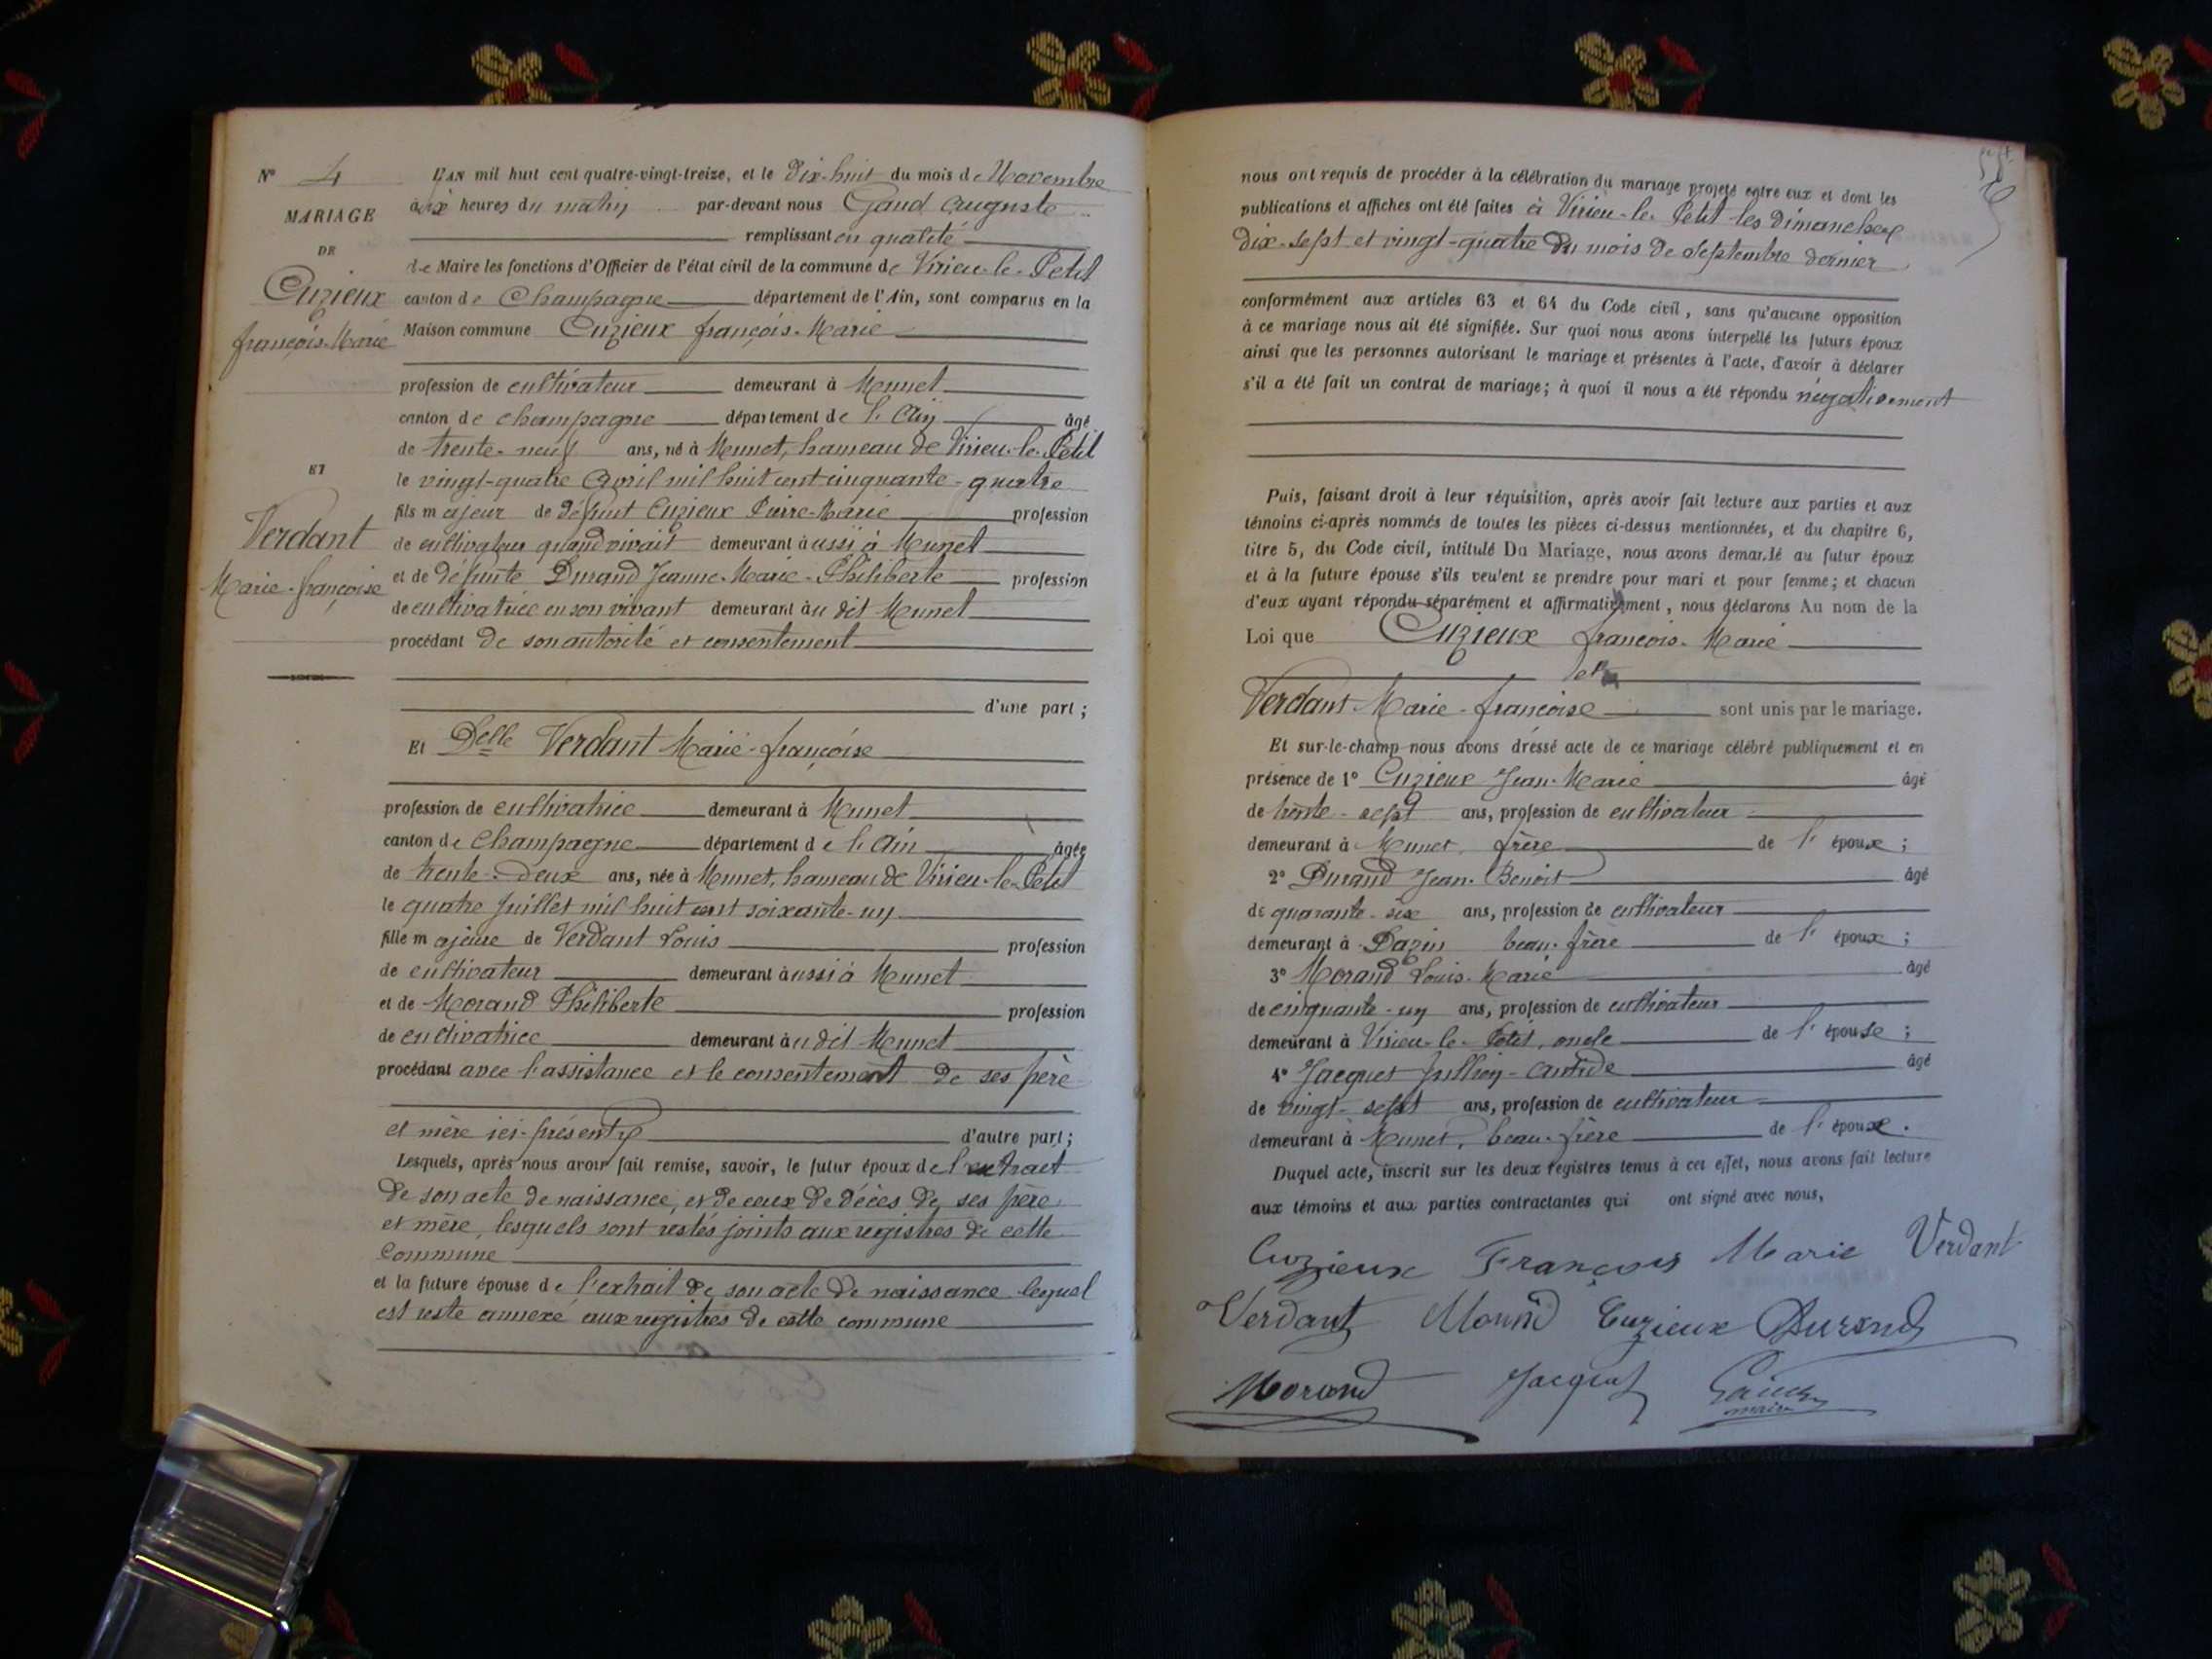 N° 4
MARIAGE
DE
Cuzieux
françois-Marie
ET
Verdant
Marie-françoise
L'AN mil huit cent quatre-vingt-treize, et le dix-huit du mois de Novembre
à six heures du matin par-devant nous Gaud Auguste
remplissant en qualité
de Maire les fonctions d'Officier de l'état civil de la commune de Virieu-le-Petit
canton de Champagne département de l'Ain, sont comparus en la
Maison commune Cuzieux françois-Marie
profession de cultivateur demeurant à Munet
canton de champagne département de l'Ain âgé
de trente-neuf ans, né à Munet, hameau de Virieu-le-Petit
le vingt-quatre Avril mil huit cent cinquante-quatre
fils majeur de défunt Cuzieux Pierre-Marie profession
de cultivateur quand vivait demeurant aussi à Munet
et de défunte Durand Jeanne-Marie-Philiberte profession
de cultivatrice en son vivant demeurant au dit Munet
procédant de son autorité et consentement
d'une part;
Et Delle Verdant Marie-françoise
profession de cultivatrice demeurant à Munet
canton de Champagne département de l'Ain âgée
de trente-deux ans, née à Munet, hameau de Virieu-le-Petit
le quatre Juillet mil huit cent soixante-un
fille majeure de Verdant Louis profession
de cultivateur demeurant aussi à Munet
et de Morand Philiberte profession
de cultivatrice demeurant au dit Munet
procédant avec l'assistance et le consentement de ses père
et mère ici-présents d'autre part;
Lesquels, après nous avoir fait remise, savoir, le futur époux de l'extrait
de son acte de naissance, et de ceux de décès de ses père
et mère, lesquels sont restés joints aux registres de cette
Commune
et la future épouse de l'extrait de son acte de naissance lequel
est resté annexé aux registres de cette commune
nous ont requis de procéder à la célébration du mariage projeté entre eux et dont les
publications et affiches ont été faites à Virieu-le-Petit les Dimanches
dix-sept et vingt-quatre du mois de Septembre dernier
conformément aux articles 63 et 64 du Code civil, sans qu'aucune opposition
à ce mariage nous ait été signifiée. Sur quoi nous avons interpellé les futurs époux
ainsi que les personnes autorisant le mariage et présentes à l'acte, d'avoir à déclarer
s'il a été fait un contrat de mariage; à quoi il nous a été répondu négativement
Puis, faisant droit à leur réquisition, après avoir fait lecture aux parties et aux
témoins ci-après nommés de toutes les pièces ci-dessus mentionnées, et du chapitre 6,
titre 5, du Code civil, intitulé Du Mariage, nous avons demandé au futur époux
et à la future épouse s'ils veulent se prendre pour mari et pour femme; et chacun
d'eux ayant répondu séparément et affirmativement, nous déclarons Au nom de la
Loi que Cuzieux françois-Marie
et
Verdant Marie-françoise sont unis par le mariage.
Et sur-le-champ nous avons dressé acte de ce mariage célébré publiquement et en
présence de 1° Cuzieux Jean-Marie âgé
de trente-sept ans, profession de cultivateur
demeurant à Munet, frère de l'époux;
2° Durand Jean-Benoit âgé
de quarante-six ans, profession de cultivateur
demeurant à Pazin beau-frère de l'époux;
3° Morand Louis-Marie âgé
de cinquante-un ans, profession de cultivateur
demeurant à Virieu-le-Petit, oncle de l'épouse;
4° Jacquet Jullien-Antide âgé
de vingt-sept ans, profession de cultivateur
demeurant à Munet, beau-frère de l'époux.
Duquel acte, inscrit sur les deux registres tenus à cet effet, nous avons fait lecture
aux témoins et aux parties contractantes qui ont signé avec nous,
Cuzieux François Marie Verdant
Verdant Morand Cuzieux Durand
Morand Jacquet
maire